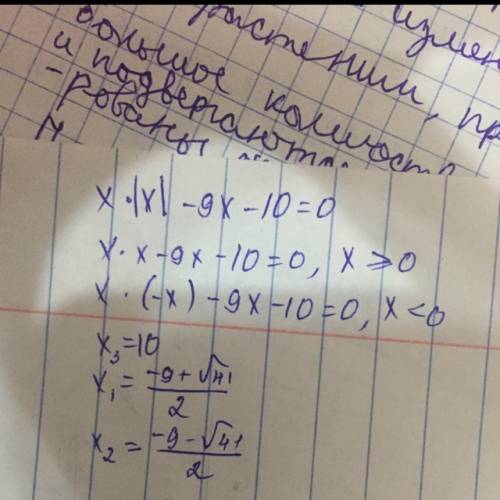 измен
растений, пр
большое количеств
и подвергаются
x · |x| - 9x - 10 = 0
x · x - 9x - 10 = 0, x ⩾ 0
x · (-x) - 9x - 10 = 0, x < 0
x₃ = 10
x₁ = (-9 + √41)/2
x₂ = (-9 - √41)/2